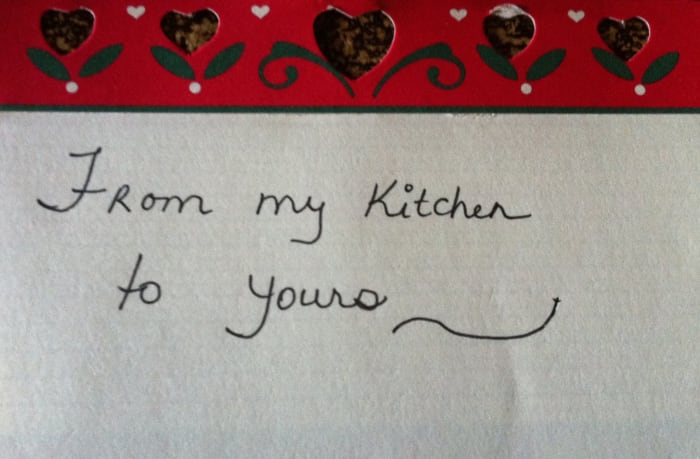 From my Kitchen
to yours